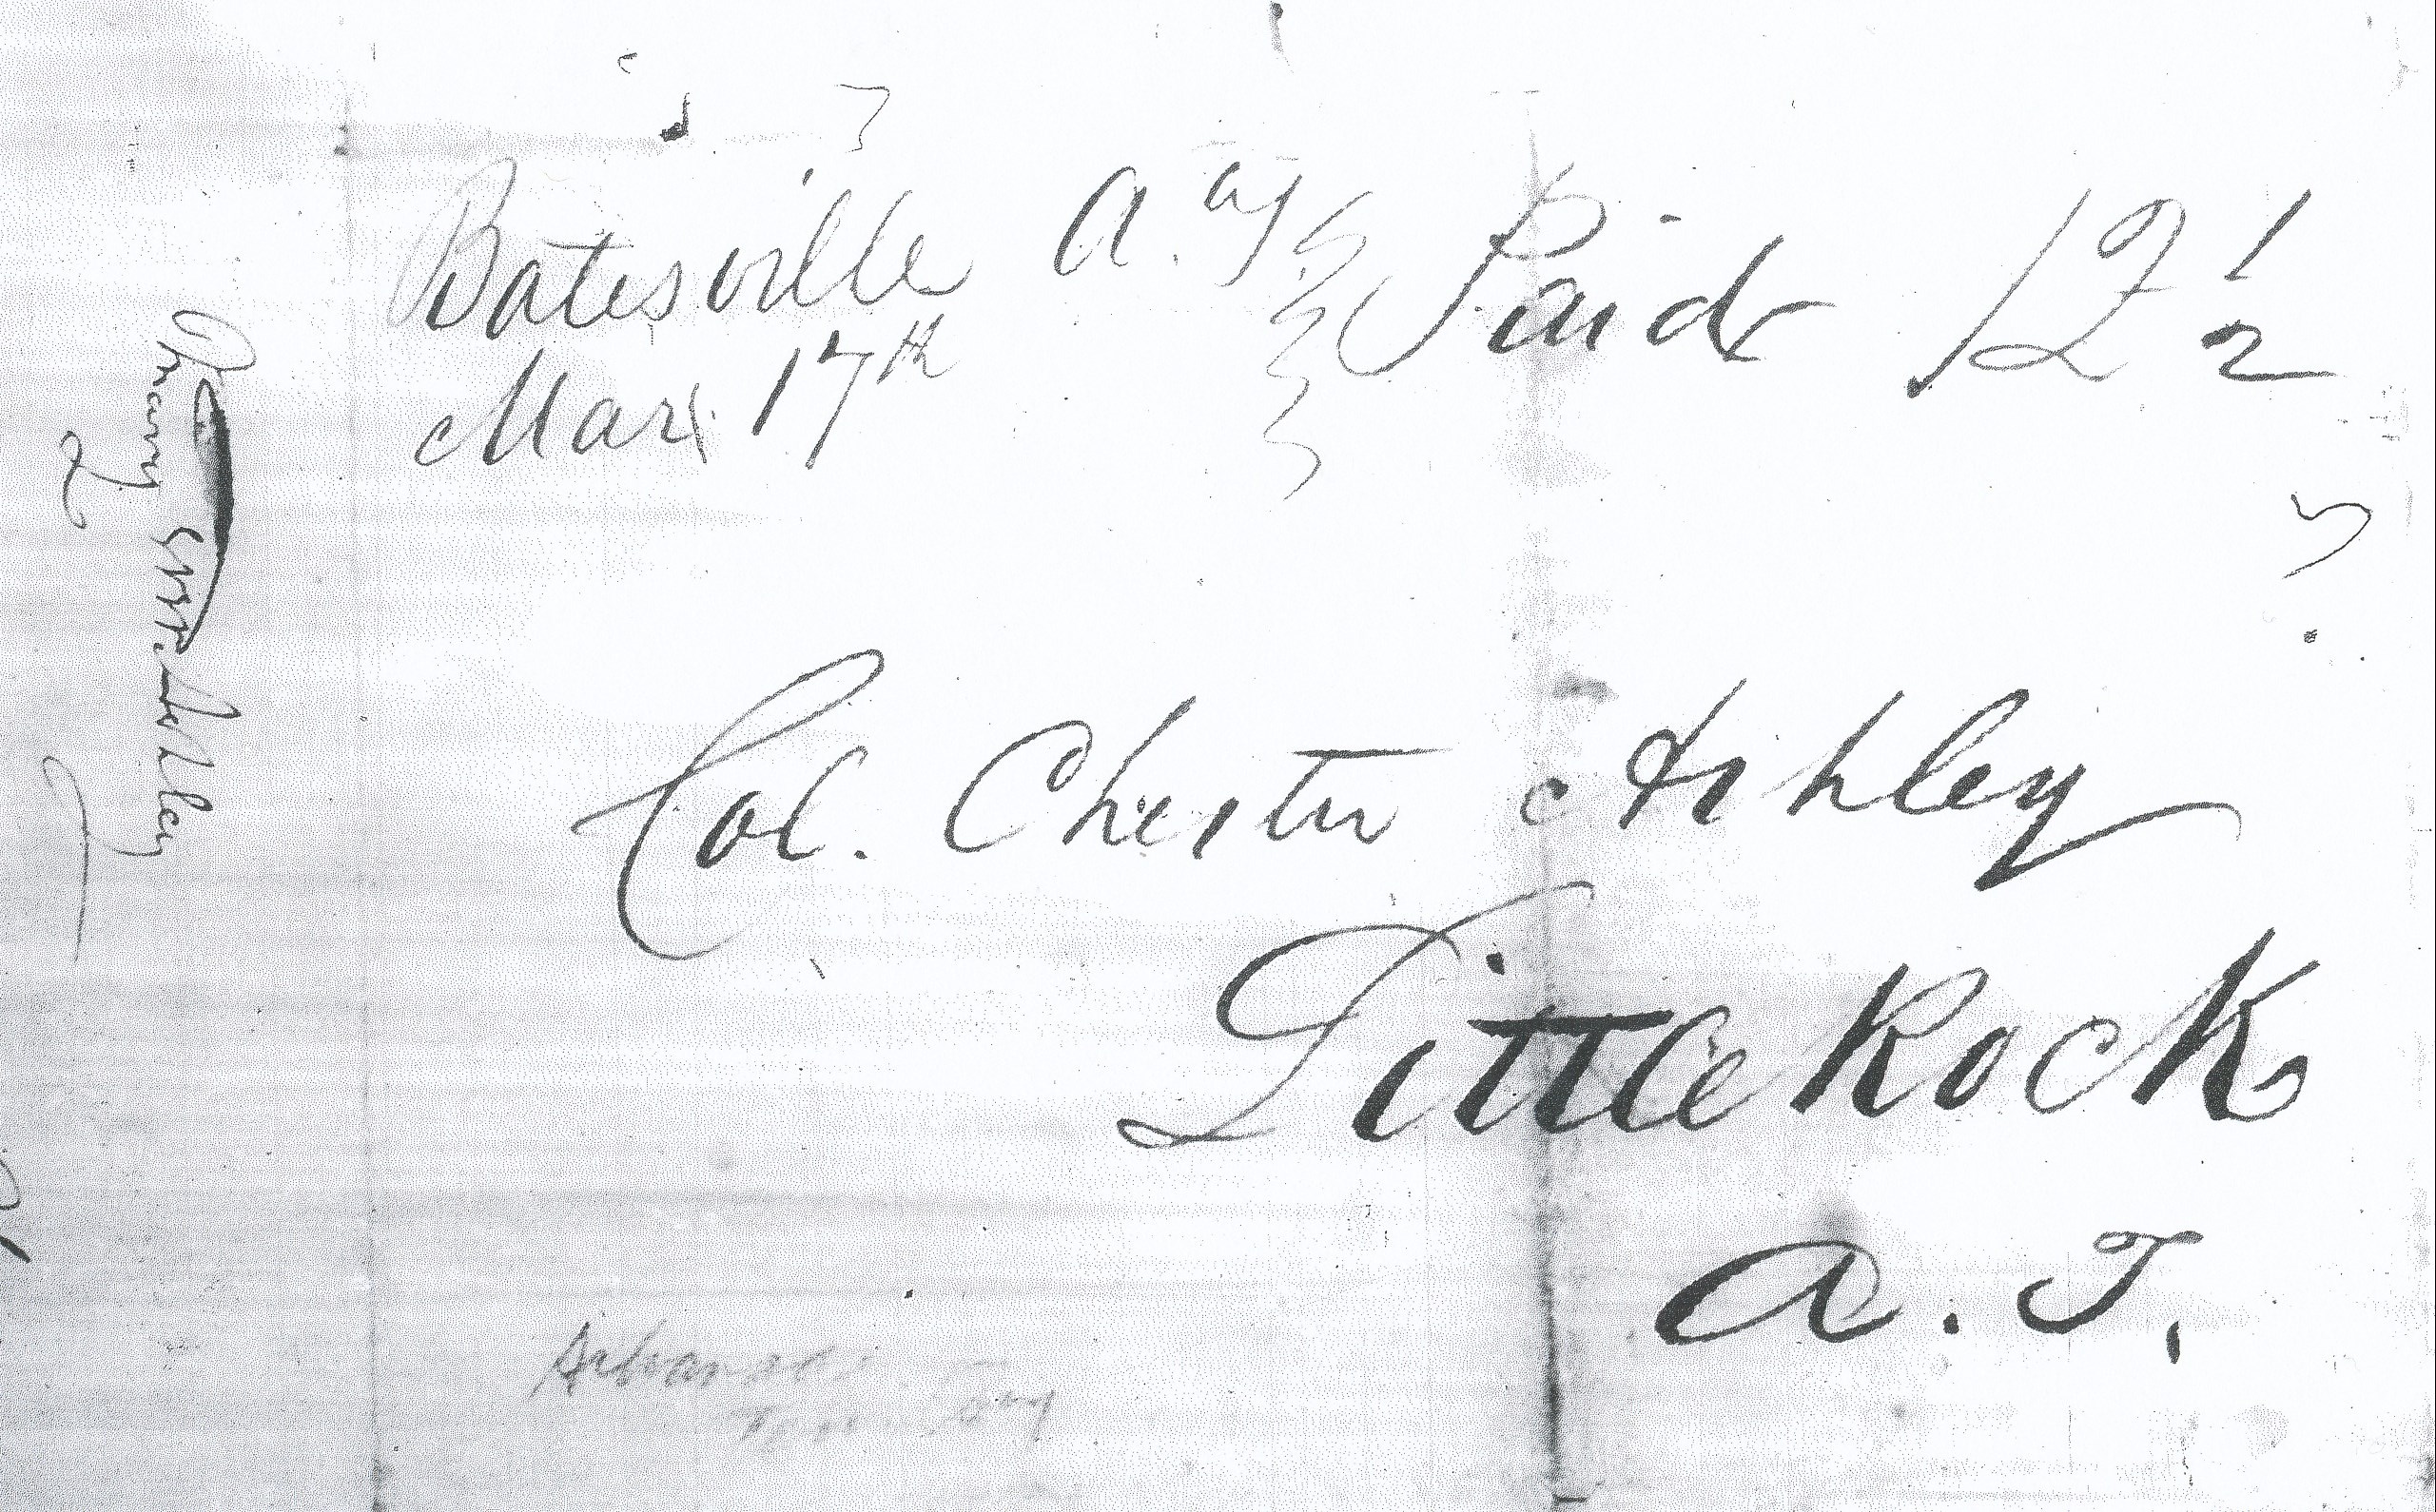 Batesville A.
Mar. 17th
Paid 12 1/2
Col. Chester Ashley
Little Rock
A. T.
Arkansas
Territory